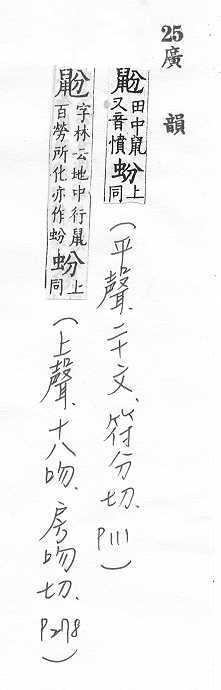 25廣 韻
鼢田中鼠又音憤蚡上同(平聲、二十文、符分切、P111)
鼢字林云地中行鼠百勞所化亦作蚡蚡上同(上聲、十八吻、房吻切、P278)